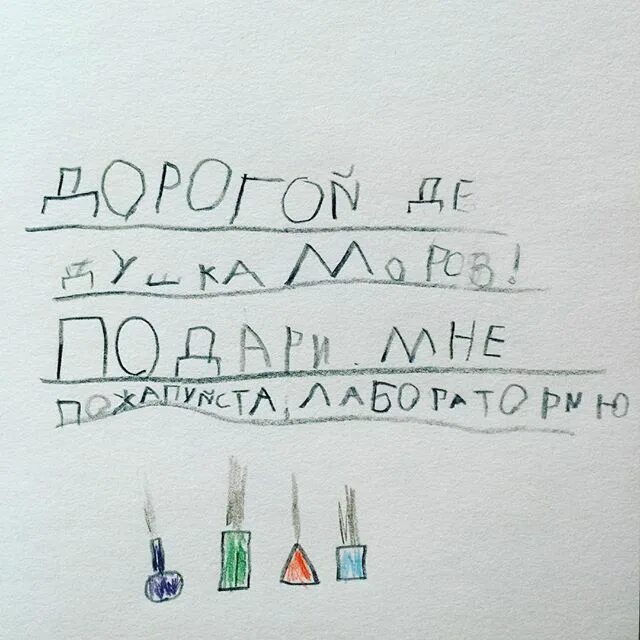 ДОРОГОЙ ДЕ
ДУШКА МОРОВ!
ПОДАРИ. МНЕ
ПОЖАПУЙСТА, ЛАБОРАТОРИЮ